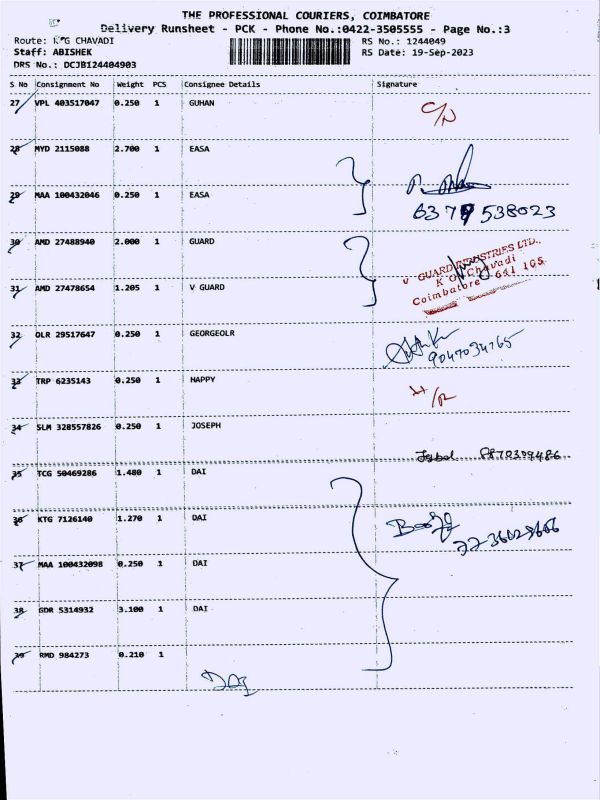 THE PROFESSIONAL COURIERS, COIMBATORE
Delivery Runsheet - PCK - Phone No.:0422-3505555 - Page No.:3
Route: K G CHAVADI RS No.: 1244049
Staff: ABISHEK RS Date: 19-Sep-2023
DRS No.: DCJB124404903
S No Consignment No Weight PCS Consignee Details Signature
27 VPL 403517047 0.250 1 GUHAN
28 MYD 2115088 2.700 1 EASA
29 MAA 100432046 0.250 1 EASA
30 AMD 27488940 2.000 1 GUARD
V GUARD INDUSTRIES LTD.,
K G Chavadi
Coimbatore 641 105
31 AMD 27478654 1.205 1 V GUARD
32 OLR 29517647 0.250 1 GEORGEOLR
33 TRP 6235143 0.250 1 HAPPY
34 SLM 328557826 0.250 1 JOSEPH
35 TCG 50469286 1.480 1 DAI
36 KTG 7126140 1.270 1 DAI
37 MAA 100432098 0.250 1 DAI
38 GDR 5314932 3.100 1 DAI
39 RMD 984273 0.210 1
DAI